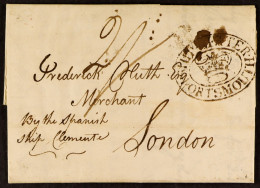 2/-
SHIP LETTER
PORTSMOUTH
Frederick Huth Esq
Merchant
By the Spanish
Ship Clemente
London